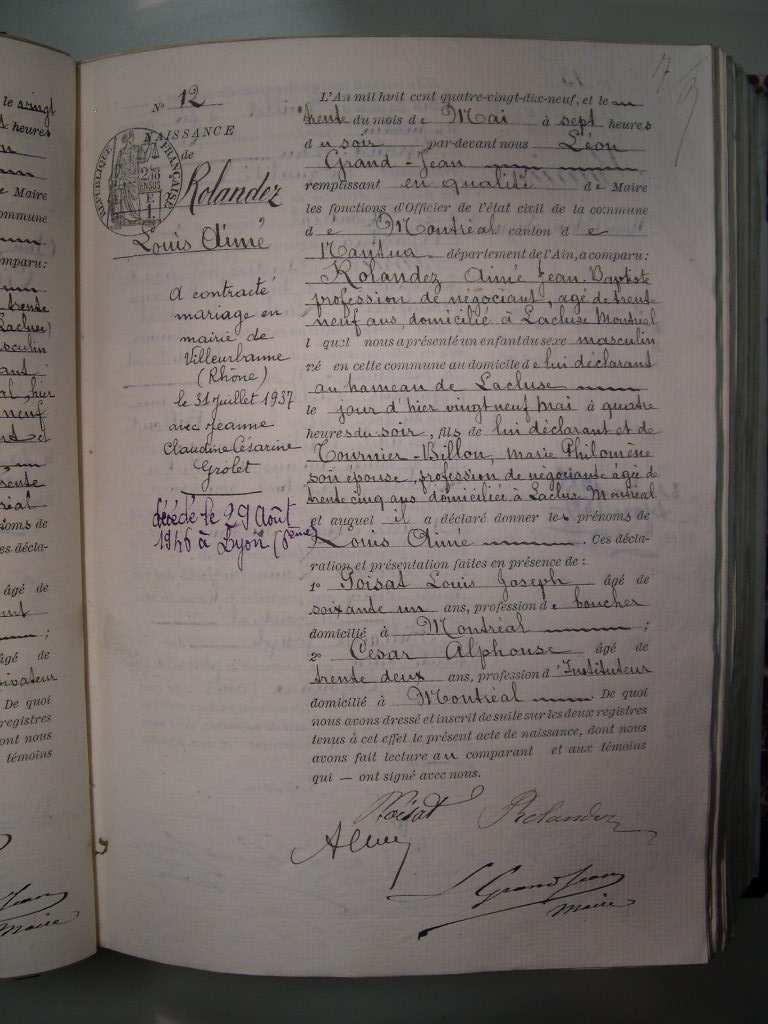 le vingt
heures
de Maire
commune
mparu :
trente
Lacluse
masculin
hier
neuf
et
oms de
es décla-
âgé de
;
âgé de
De quoi
registres
ont nous
témoins
Maire
N° 12
NAISSANCE
de
RÉPUBLIQUE FRANÇAISE
Rolandez
Louis Aimé
A contracté
mariage en
mairie de
Villeurbanne
(Rhône)
le 31 juillet 1937
avec Jeanne
Claudine Césarine
Grolet
décédé le 29 Août
1946 à Lyon (6eme)
17
L'An mil huit cent quatre-vingt-dix-neuf, et le
trente du mois de Mai à sept heures
du soir par-devant nous Léon
Grand-Jean
remplissant en qualité de Maire
les fonctions d'Officier de l'état civil de la commune
de Montréal canton de
Nantua département de l'Ain, a comparu :
Rolandez Aimé Jean-Baptiste
profession de négociant, âgé de trente
neuf ans, domicilié à Lacluse Montréal
l qu'il nous a présenté un enfant du sexe masculin
né en cette commune au domicile de lui déclarant
au hameau de Lacluse
le jour d'hier vingt neuf mai à quatre
heures du soir, fils de lui déclarant et de
Tournier-Billon, Marie Philomène
son épouse, profession de négociante âgée de
trente cinq ans domiciliée à Lacluse Montréal
et auquel il a déclaré donner les prénoms de
Louis Aimé Ces décla-
ration et présentation faites en présence de :
1° Poisat Louis Joseph âgé de
soixante un ans, profession de boucher
domicilié à Montréal ;
2° César Alphonse âgé de
trente deux ans, profession d'Instituteur
domicilié à Montréal De quoi
nous avons dressé et inscrit de suite sur les deux registres
tenus à cet effet le présent acte de naissance, dont nous
avons fait lecture au comparant et aux témoins
qui — ont signé avec nous.
Poisat Rolandez
L Grand Jean
Maire